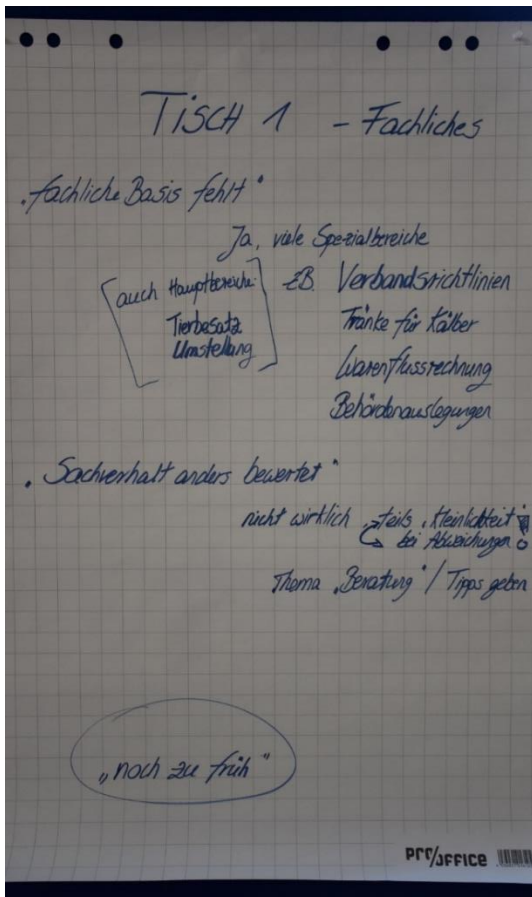 Tisch 1 - Fachliches
"fachliche Basis fehlt"
Ja, viele Spezialbereiche
[auch Hauptbereiche:
Tierbesatz
Umstellung]
zB. Verbandsrichtlinien
Tränke für Kälber
Warenflussrechnung
Behördenauslegungen
"Sachverhalt anders bewertet"
nicht wirklich, teils "Kleinlichkeit"
bei Abweichungen !
Thema "Beratung" / Tipps geben
"noch zu früh"
PRO/OFFICE